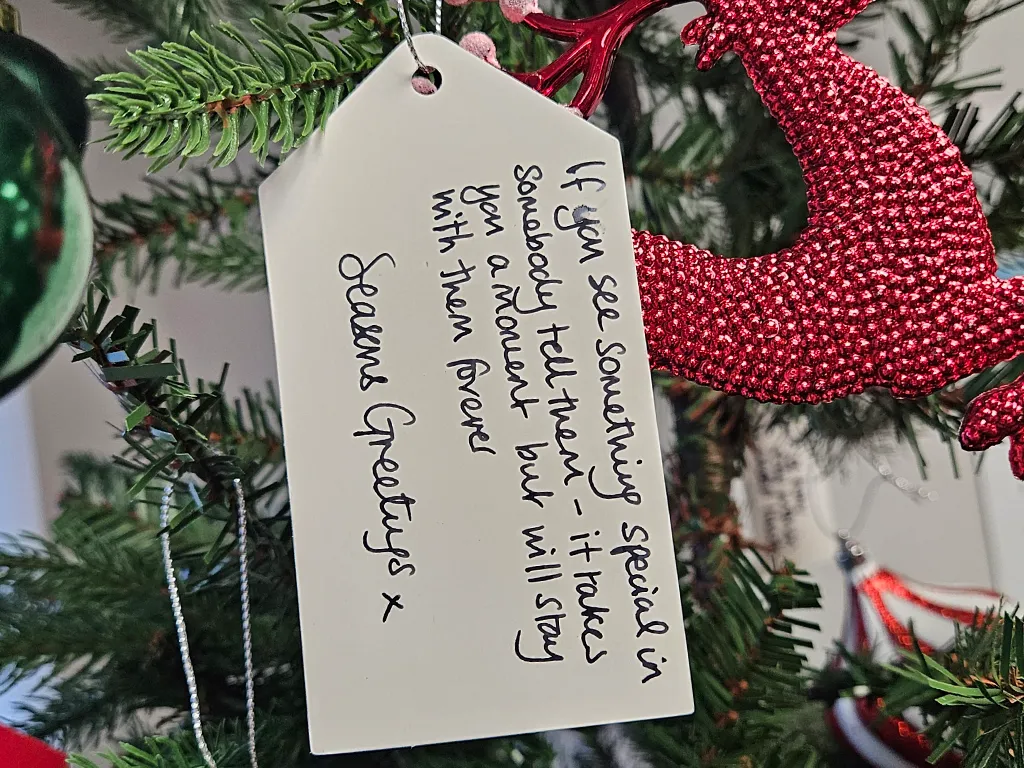 If you see something special in
somebody tell them - it takes
you a moment but will stay
with them forever
Seasons Greetings x